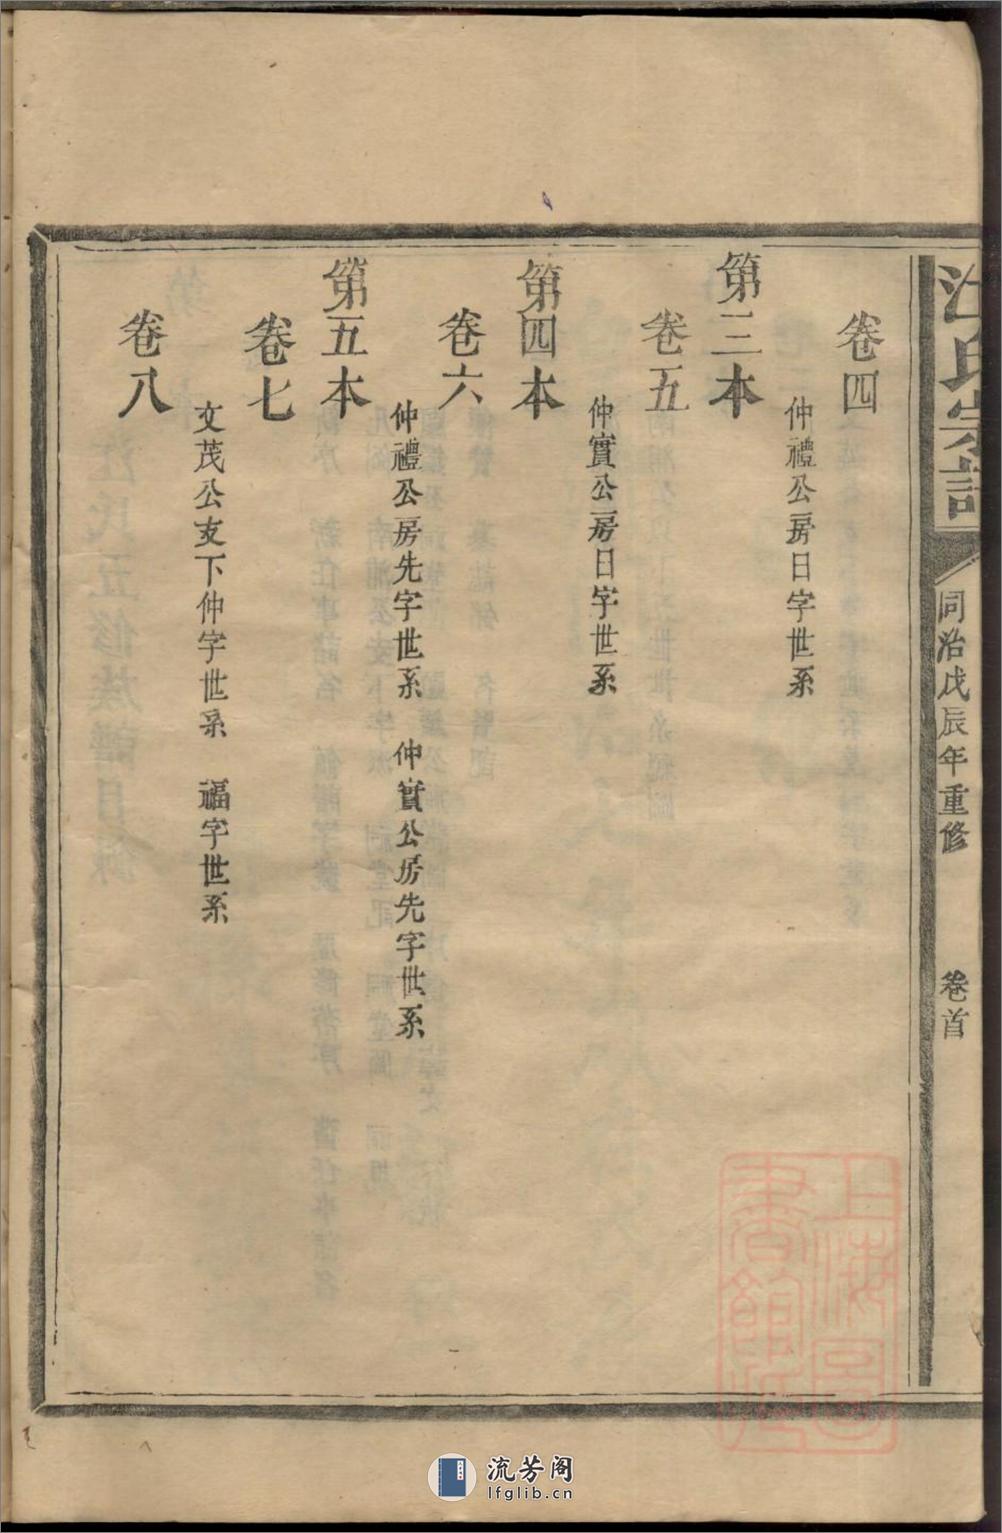 江氏宗譜
同治戊辰年重修
卷首
卷四
仲禮公房日字世系
第三本
卷五
仲實公房日字世系
第四本
卷六
仲禮公房先字世系 仲實公房先字世系
第五本
卷七
文茂公支下仲字世系 福字世系
卷八
上海圖書館藏
流芳阁
lfglib.cn